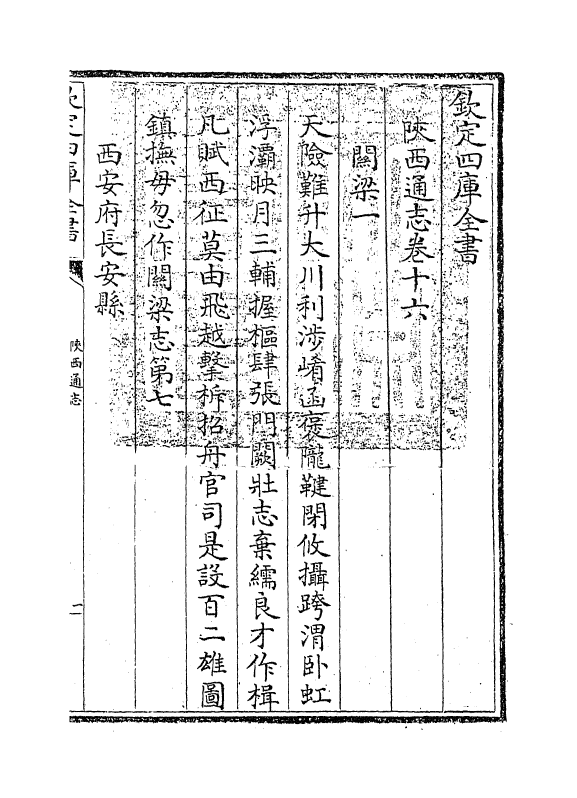 欽定四庫全書
陜西通志卷十六
關梁一
天險難升大川利涉崤函褒隴鍵閉攸攝跨渭卧虹
浮灞映月三輔握樞肆張門闕壯志棄繻良才作楫
凡賦西征莫由飛越擊柝招舟官司是設百二雄圖
鎮撫毋忽作關梁志第七
西安府長安縣
欽定四庫全書
陜西通志
一